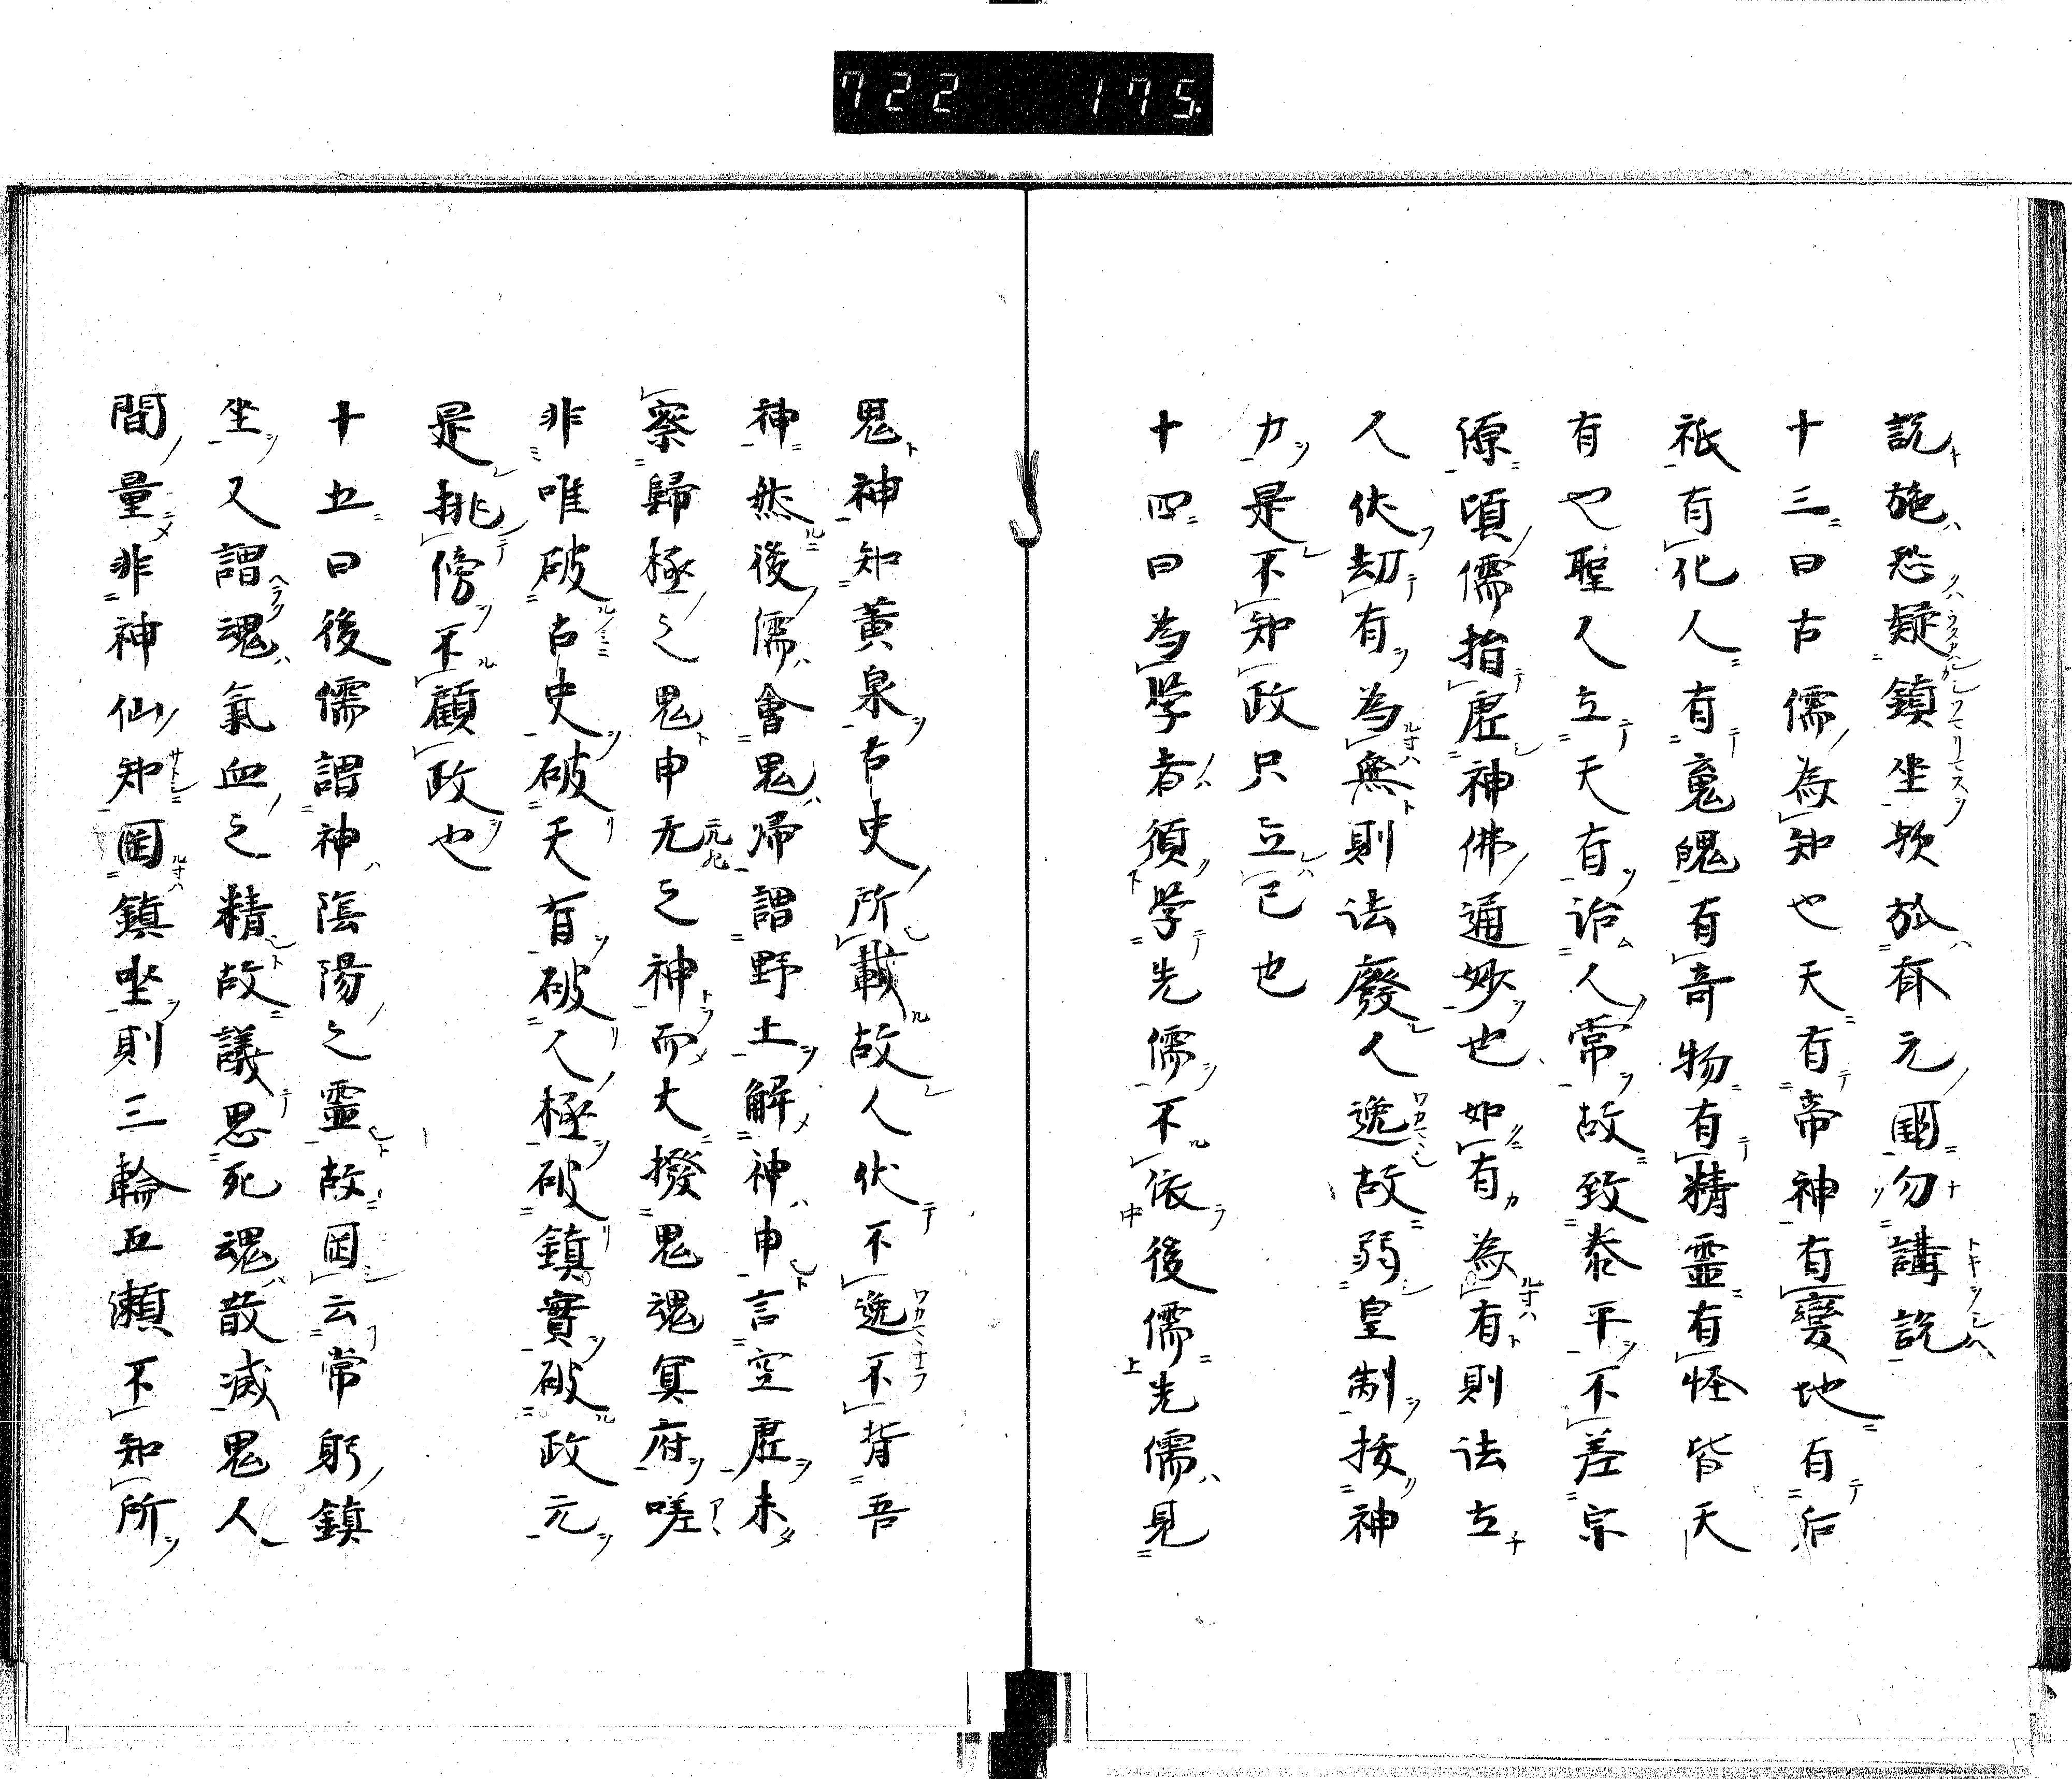 722 175
説施恐疑鎮坐欤於有元國勿講説
十三曰古儒為知也天有帝神有變地有后
祇有化人有寃魄有竒物有精靈有怪皆天
有也聖人立天有治人常故致泰平不差宗
源頃儒指虚神佛通妙也如有為有則法立
人伏劫有為無則法廢人逸故弱皇制按神
力是不知政只立己也
十四曰為学者須学先儒不依後儒先儒見
鬼神知黄泉古史所載故人伏不逸不背吾
神然後儒會鬼帰謂野土解神申言空虚未
察歸極之鬼申无之神而大撥鬼魂冥府嗟
非唯破古史破天有破人極破鎮實破政元
是挑傍不顧政也
十五曰後儒謂神陰陽之靈故罔云常躬鎮
坐又謂魂氣血之精故議思死魂散滅鬼人
間量非神仙知罔鎮坐則三輪五瀬不知所